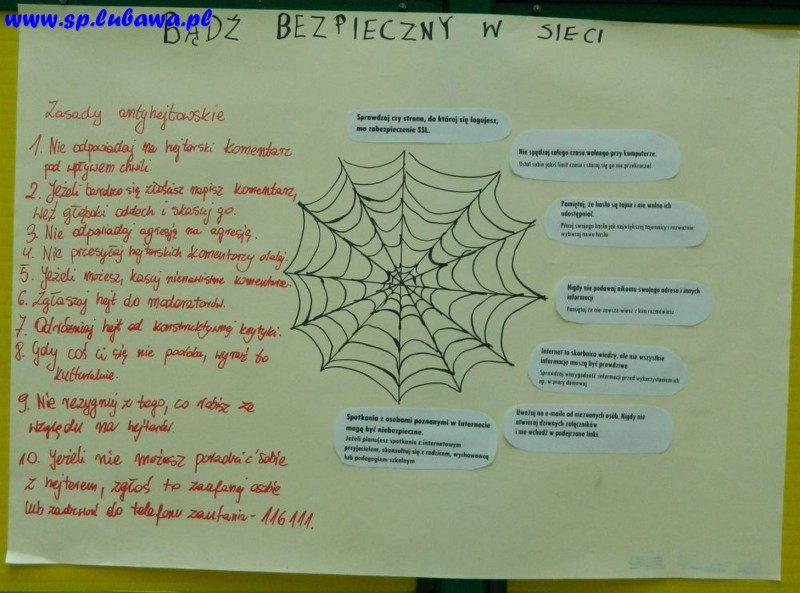 www.sp.lubawa.pl
BĄDŹ BEZPIECZNY W SIECI
Zasady antyhejtowskie
1. Nie odpowiadaj na hejterski komentarz
pod wpływem chwili.
2. Jeżeli bardzo się złościsz napisz komentarz,
weź głęboki oddech i skasuj go.
3. Nie odpowiadaj agresją na agresję.
4. Nie przesyłaj hejterskich komentarzy dalej.
5. Jeżeli możesz, kasuj nienawistne komentarze.
6. Zgłaszaj hejt do moderatorów.
7. Odróżniaj hejt od konstruktywnej krytyki.
8. Gdy coś ci się nie podoba, wyraź to
kulturalnie.
9. Nie rezygnuj z tego, co robisz ze
względu na hejterów.
10. Jeżeli nie możesz poradzić sobie
z hejterem, zgłoś to zaufanej osobie
lub zadzwoń do telefonu zaufania - 116 111.
Sprawdzaj czy strona, do której się logujesz,
ma zabezpieczenie SSL.
Nie spędzaj całego czasu wolnego przy komputerze.
Ustal sobie jakiś limit czasu i staraj się go nie przekraczać
Pamiętaj, że hasła są tajne i nie wolno ich
udostępniać.
Pilnuj swojego hasła jak największej tajemnicy i rozważnie
wybieraj nowe hasła
Nigdy nie podawaj nikomu swojego adresu i innych
informacji
Pamiętaj że nie zawsze wiesz z kim rozmawiasz
Internet to skarbnica wiedzy, ale nie wszystkie
informacje muszą być prawdziwe
Sprawdzaj wiarygodność informacji przed wykorzystaniem ich
np. w pracy domowej
Uważaj na e-maile od nieznanych osób. Nigdy nie
otwieraj dziwnych załączników
i nie wchodź w podejrzane linki.
Spotkania z osobami poznanymi w Internecie
mogą być niebezpieczne.
Jeżeli planujesz spotkanie z internetowym
przyjacielem, skonsultuj się z rodzicem, wychowawcą
lub pedagogiem szkolnym